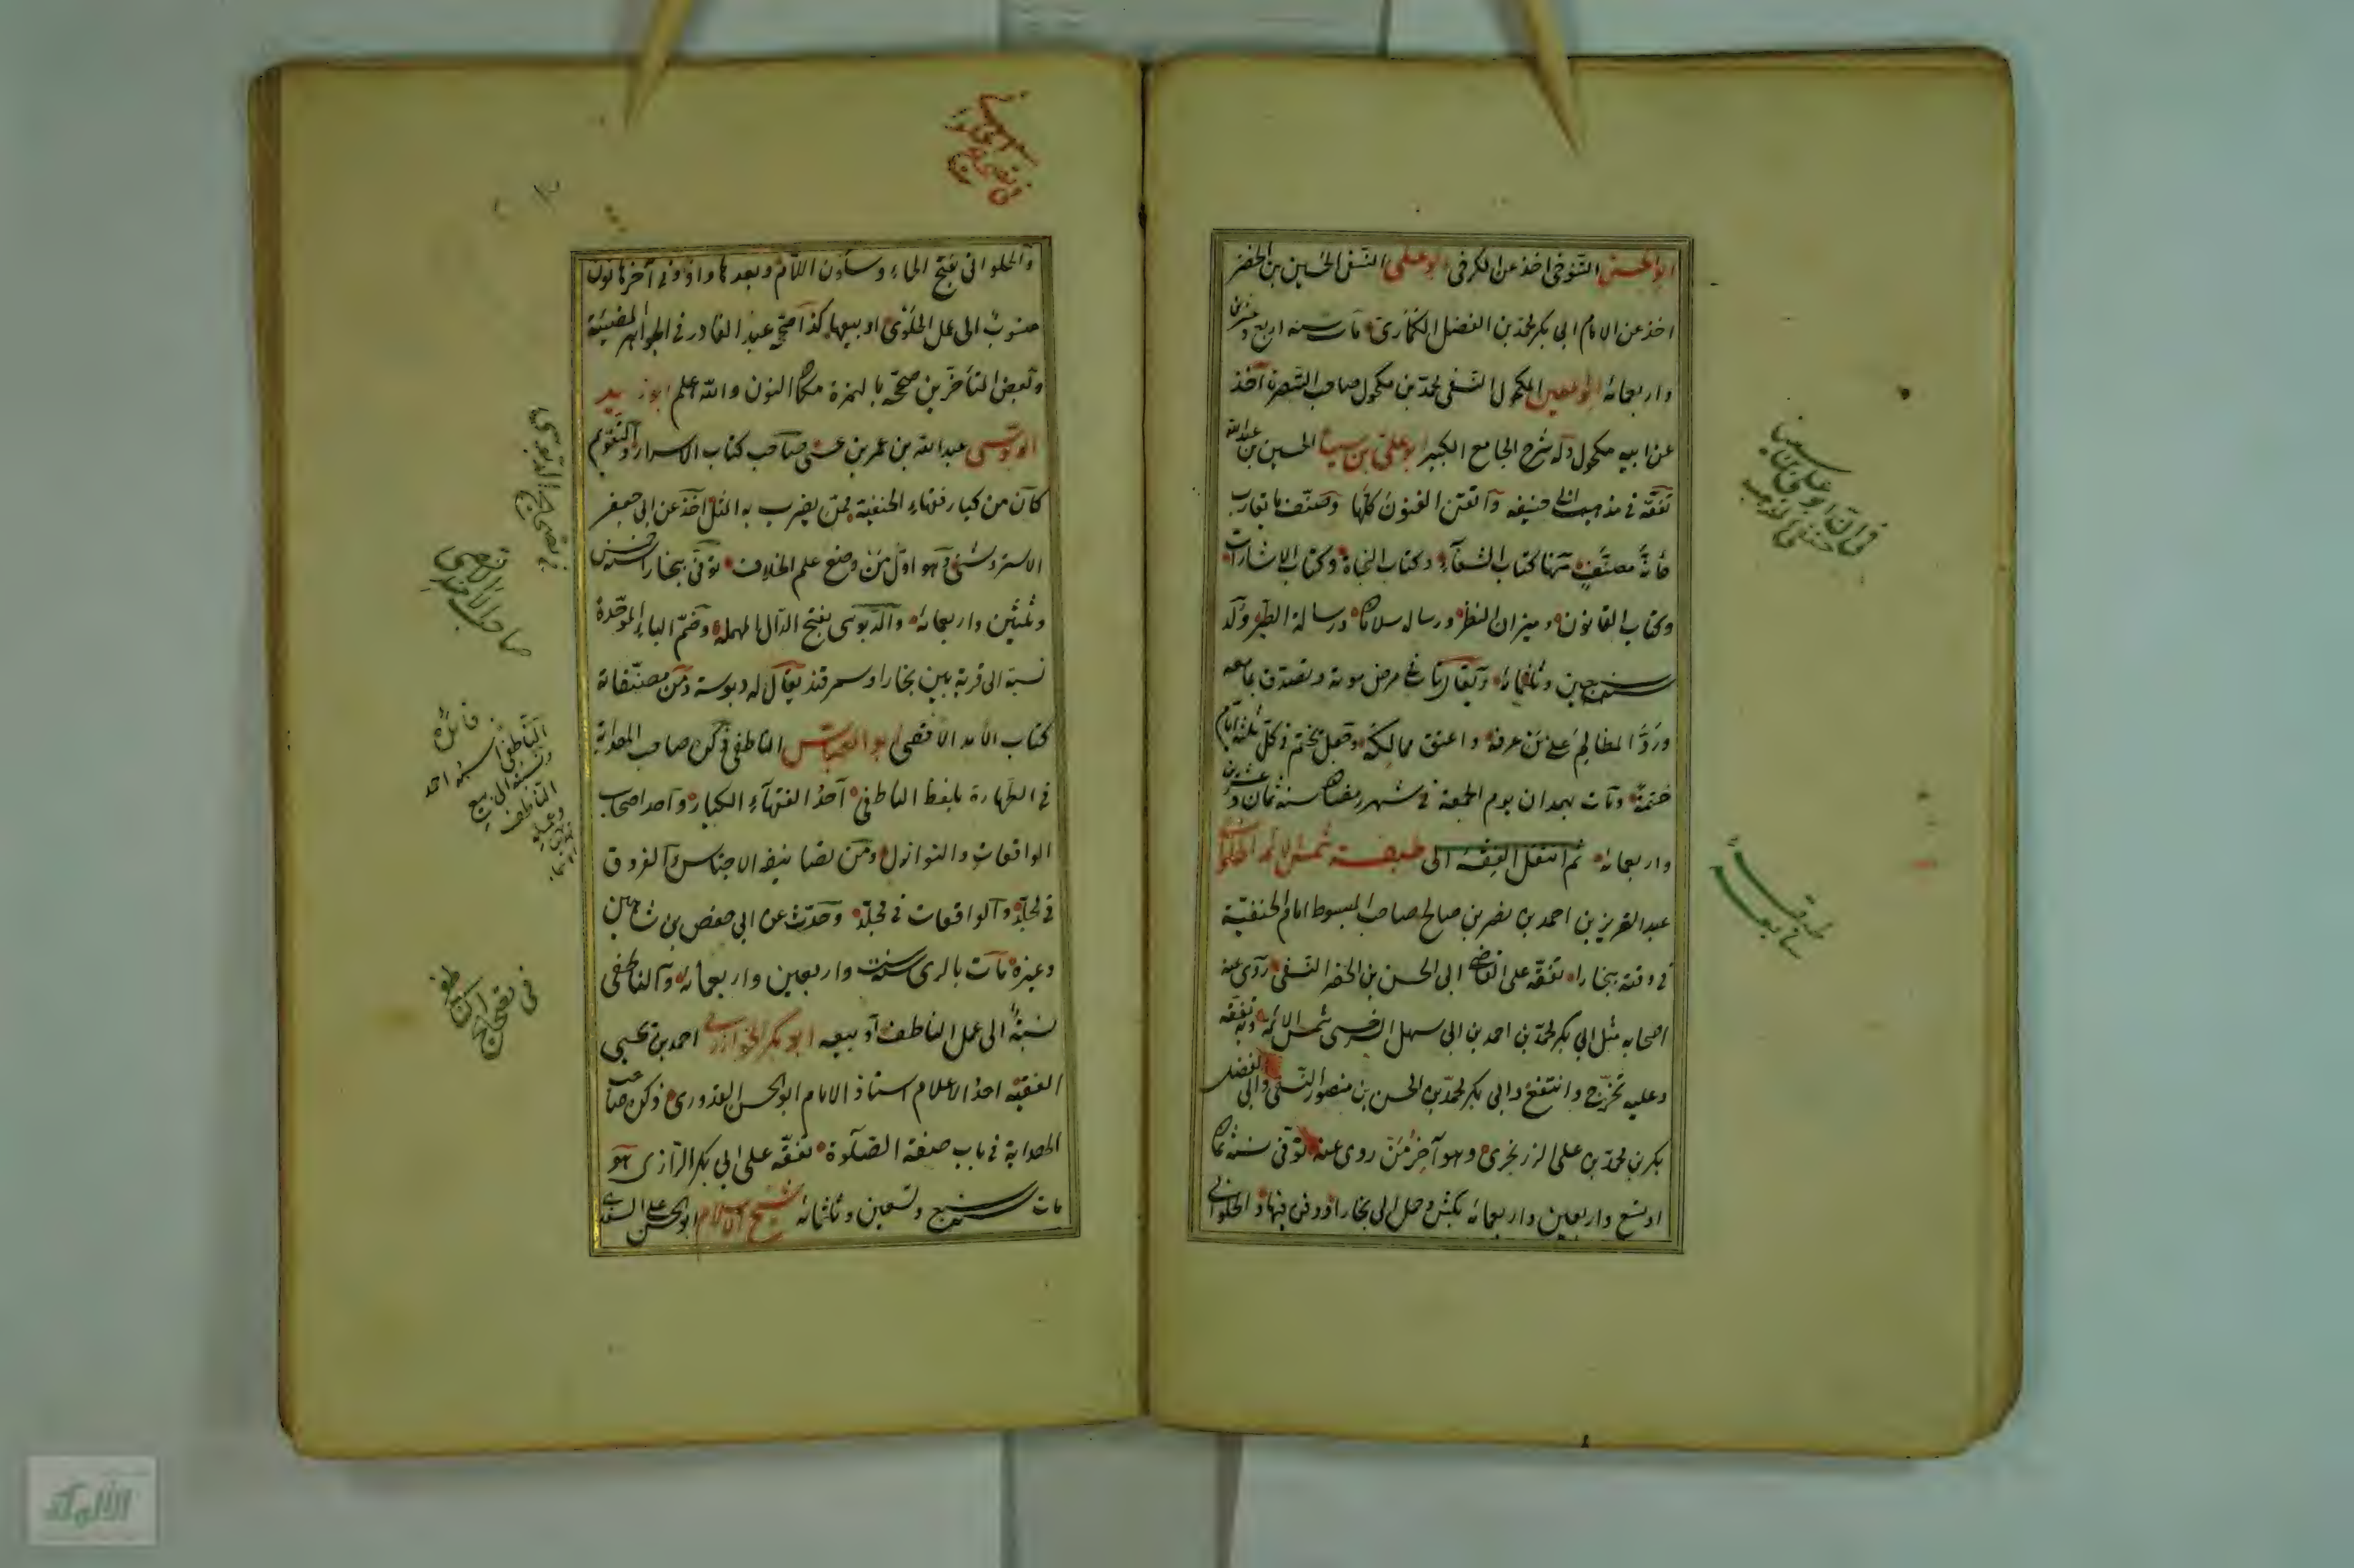 ابو الحسن التنوخي اخذ عن الكرخي ابو علي النسفي الحسين بن الخضر
اخذ عن الامام ابي بكر محمد بن الفضل الكماري مات سنة اربع وعشرين
واربعمائة ابو المعين المكحولي النسفي محمد بن مكحول صاحب التبصرة اخذ
عن ابيه مكحول وله شرح الجامع الكبير ابو علي بن سينا الحسين بن عبد الله
تفقه في مذهب ابي حنيفة واتقن الفنون كلها وصنف ما يقارب
مائة مصنف منها كتاب الشفاء وكتاب النجاة وكتاب الاشارات
وكتاب القانون وميزان النظر ورسالة سلامان ورسالة الطير ولد
سنة سبعين وثلثمائة ويقال تاب في مرض موته وتصدق بما معه
ورد المظالم على من عرفه واعتق مماليكه وجعل يختم في كل ثلثة ايام
ختمة ومات بهمدان يوم الجمعة في شهر رمضان سنة ثمان وعشرين
واربعمائة ثم انتقل الفقه الى طبقة شمس الائمة الحلواني
عبد العزيز بن احمد بن نصر بن صالح صاحب المبسوط امام الحنفية
في وقته ببخارا تفقه على القاضي ابي الحسن بن الخضر النسفي روى عنه
اصحابه مثل ابي بكر محمد بن احمد بن ابي سهل السرخسي شمس الائمة وبه تفقه
وعليه تخرج وانتفع وابي بكر محمد بن الحسن بن منصور النسفي وابي الفضل
بكر بن محمد بن علي الزرنجري وهو آخر من روى عنه توفي سنة ثمان
او تسع واربعين واربعمائة بكش وحمل الى بخارا ودفن فيها والحلواني
والحلواني بفتح الحاء وسكون اللام وبعدها واو وفي آخرها نون
منسوب الى عمل الحلوى او بيعها كذا صح عبد القادر في الجواهر المضيئة
وبعض المتأخرين صححه بالهمزة مكان النون والله اعلم ابو زيد
الدبوسي عبد الله بن عمر بن عيسى صاحب كتاب الاسرار والتقويم
كان من كبار فقهاء الحنفية ممن يضرب به المثل اخذ عن ابي جعفر
الاستروشني وهو اول من وضع علم الخلاف توفي ببخارا سنة
وثلثين واربعمائة والدبوسي بفتح الدال المهملة وضم الباء الموحدة
نسبة الى قرية بين بخارا وسمرقند يقال له دبوسة ومن مصنفاته
كتاب الأمد الأقصى ابو العباس الناطفي ذكره صاحب الهداية
في الطهارة بلفظ الناطفي احد الفقهاء الكبار واحد اصحاب
الواقعات والنوازل ومن تصانيفه الاجناس والفروق
في مجلد والواقعات في مجلد وحدث عن ابي حفص بن شاهين
وغيره مات بالري سنة ست واربعين واربعمائة والناطفي
نسبة الى عمل الناطف او بيعه ابو بكر الخوارزمي احمد بن يحيى
الفقيه احد الاعلام استاذ الامام ابو الحسن القدوري ذكره صاحب
الهداية في باب صفة الصلوة تفقه على ابي بكر الرازي هو
مات سنة سبع وتسعين وثلثمائة شيخ الاسلام ابو الحسن علي السغدي
في تصحيح الدبوسي
صاحب الأمد الاقصى
فائدة
الناطفي اسمه احمد
ونسبته الى بيع
الناطف